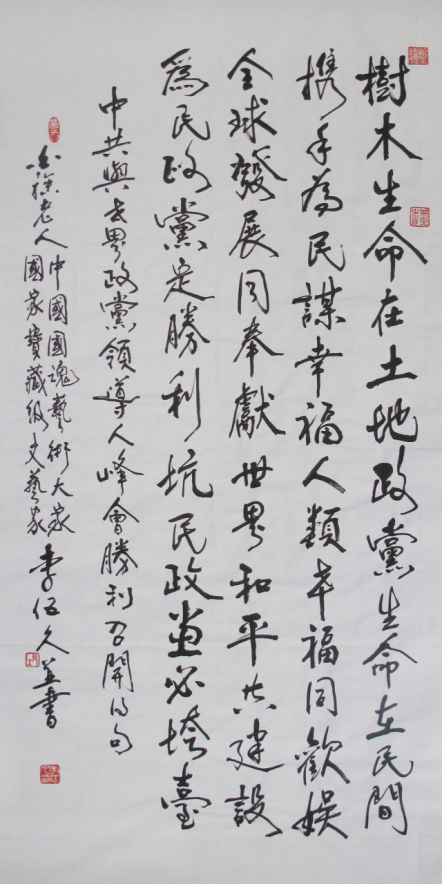 樹木生命在土地政黨生命在民間
携手為民謀幸福人類幸福同歡娛
全球發展同奉獻世界和平共建設
為民政黨定勝利坑民政黨必垮臺
中共與世界政黨領導人峰會勝利召開得句
老人中國國魂藝術大家
國家贊藏級文藝家
李伍久並書